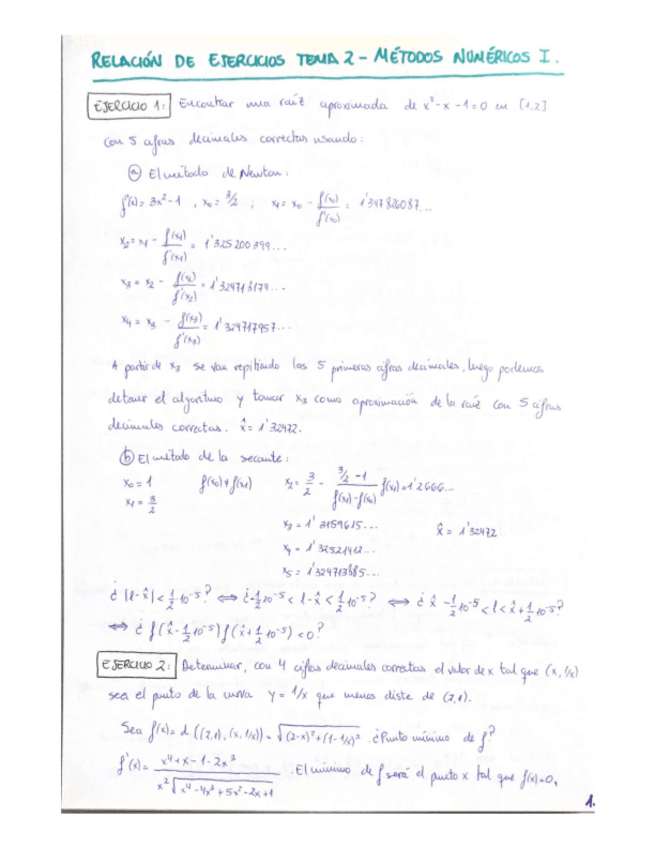 RELACIÓN DE EJERCICIOS TEMA 2 - MÉTODOS NUMÉRICOS I.
EJERCICIO 1: Encontrar una raíz aproximada de x³-x-1=0 en [1,2]
con 5 cifras decimales correctas usando:
ⓐ El método de Newton:
f'(x)= 3x²-1 , x₀= 3/2 ; x₁= x₀ - f(x₀)/f'(x₀) = 1'347826087...
x₂= x₁ - f(x₁)/f'(x₁) = 1'325200399...
x₃ = x₂ - f(x₂)/f'(x₂) = 1'324718174...
x₄ = x₃ - f(x₃)/f'(x₃) = 1'324717957...
A partir de x₃ se van repitiendo las 5 primeras cifras decimales, luego podemos
detener el algoritmo y tomar x₃ como aproximación de la raíz con 5 cifras
decimales correctas. x̂= 1'32472.
ⓑ El método de la secante:
x₀ = 1 f(x₀)≠f(x₁) x₂= 3/2 - (3/2 -1)/(f(x₁)-f(x₀)) f(x₁)=1'2666...
x₁ = 3/2
x₃ = 1'3159615... x̂ = 1'32472
x₄ = 1'32521412...
x₅ = 1'324713885...
¿|l-x̂|<1/2 10⁻⁵? ⟺ ¿-1/2 10⁻⁵ < l-x̂ < 1/2 10⁻⁵? ⟺ ¿ x̂ -1/2 10⁻⁵ < l < x̂+1/2 10⁻⁵?
⟺ ¿ f(x̂-1/2 10⁻⁵) f(x̂+1/2 10⁻⁵) < 0?
EJERCICIO 2: Determinar, con 4 cifras decimales correctas el valor de x tal que (x, 1/x)
sea el punto de la curva y = 1/x que menos diste de (2,1).
Sea f(x)= d ((2,1), (x, 1/x)) = √((2-x)²+(1-1/x)²) . ¿Punto mínimo de f?
f'(x)= (x⁴+x-1-2x³)/(x²√(x⁴-4x³+5x²-2x+1)) . El mínimo de f será el punto x tal que f'(x)=0,
1.